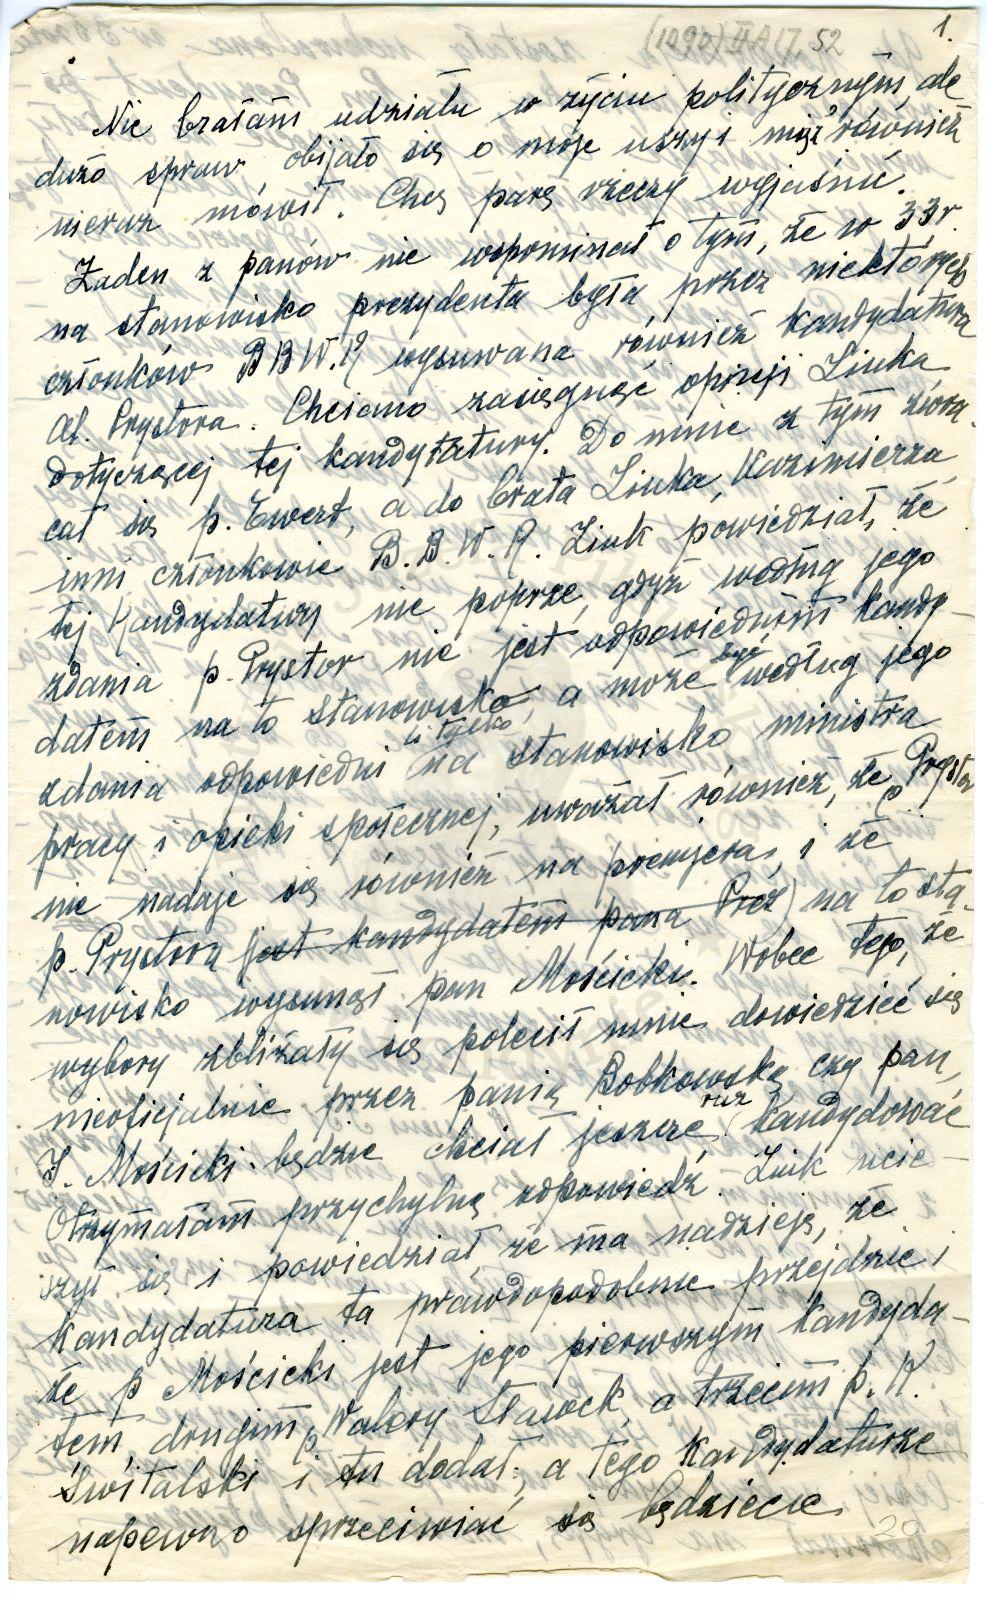 (1090) II A 17. 52
1.
Nie brałam udziału w życiu politycznym, ale
dużo spraw obijało się o moje uszy i mąż również
nieraz mówił. Chcę parę rzeczy wyjaśnić.
Żaden z panów nie wspominał o tym, że w 33 r.
na stanowisko prezydenta była przez niektórych
członków BBW.R wysuwana również kandydatura
Al. Prystora. Chciano zasięgnąć opinji Ziuka
dotyczącej tej kandydatury. Do mnie z tym zwra-
cał się p. Ewert, a do brata Ziuka, Kazimierza,
inni członkowie B.B.W.R. Ziuk powiedział, że
tej kandydatury nie poprze, gdyż według jego
zdania p. Prystor nie jest odpowiednim kandy-
datem na to stanowisko, a może być według jego
zdania odpowiedni li tylko na stanowisko ministra
pracy i opieki społecznej, uważał również, że p. Prystor
nie nadaje się również na premjera, i że
p. Prystora jest kandydatem pana Prez) na to sta-
nowisko wysunął pan Mościcki. Wobec tego, że
wybory zbliżały się polecił mnie dowiedzieć się
nieoficjalnie przez panią Bobkowską czy pan
I. Mościcki będzie chciał jeszcze raz kandydować
Otrzymałam przychylną odpowiedź. Ziuk ucie-
szył się i powiedział, że ma nadzieję, że
kandydatura ta prawdopodobnie przejdzie i
że p Mościcki jest jego pierwszym kandyda-
tem, drugim p Walery Sławek, a trzecim p. K.
Świtalski i tu dodał, a tego kandydaturze
napewno sprzeciwiać się będziecie
20